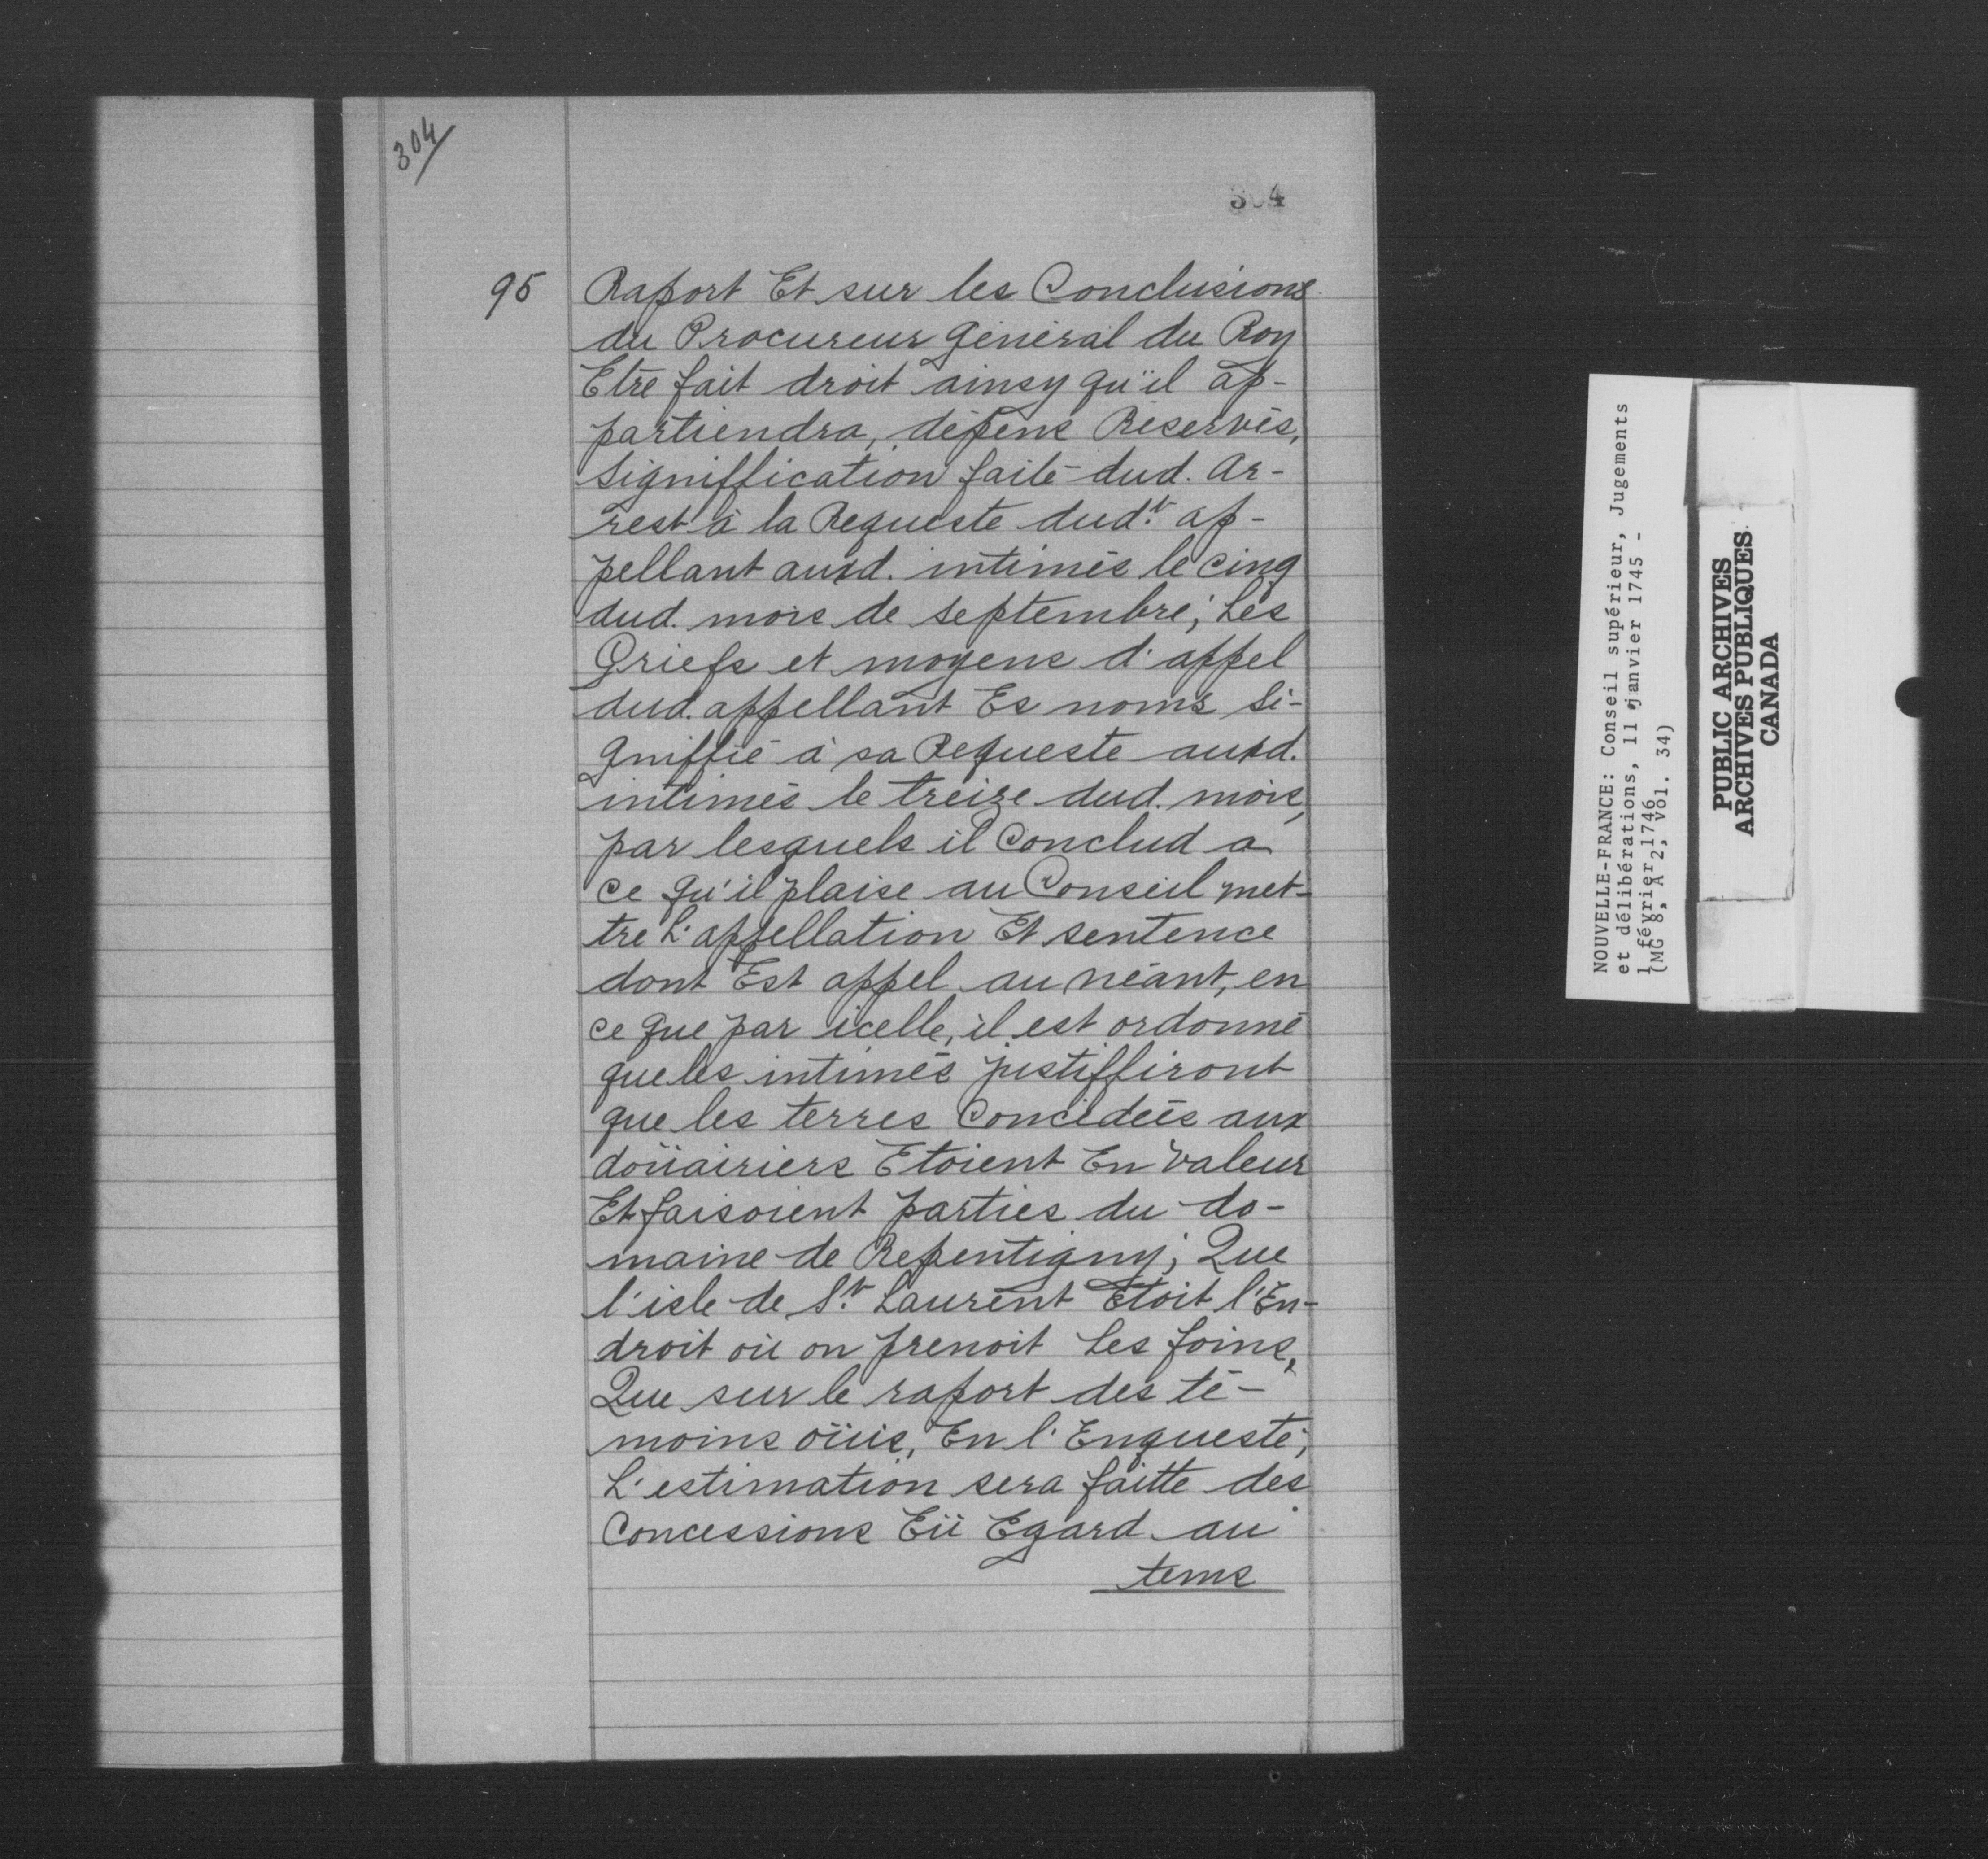 304
304
95 Raport Et sur les Conclusions
du Procureur général du Roy
Etre fait droit ainsy qu'il ap-
partiendra, dépens Réservés,
Signiffication faite dud. Ar-
rest à la Requeste dud.t ap-
pellant auxd. intimés le cinq
dud. mois de septembre; Les
Griefs et moyens d'appel
dud. appellant Es noms si-
gniffié à sa Requeste auxd.
intimés le treize dud. mois,
par lesquels il Conclud a
ce qu'il plaise au Conseil met-
tre L'appellation Et sentence
dont Est appel au néant, en
ce que par icelle, il est ordonné
que les intimés justiffiront
que les terres Concédées aux
doüairiers Etoient En Valeur
Et faisoient parties du do-
maine de Repentigny; Que
l'isle de S.t Laurent Etoit l'En-
droit où on prenoit Les foins,
Que sur le raport des té-
moins oüis, En l'Enqueste;
L'estimation sera faitte des
Concessions Eü Egard au
tems
NOUVELLE-FRANCE: Conseil supérieur, Jugements
et délibérations, 11 janvier 1745 -
1 février 1746
(MG 8, A 2, vol. 34)
PUBLIC ARCHIVES
ARCHIVES PUBLIQUES
CANADA